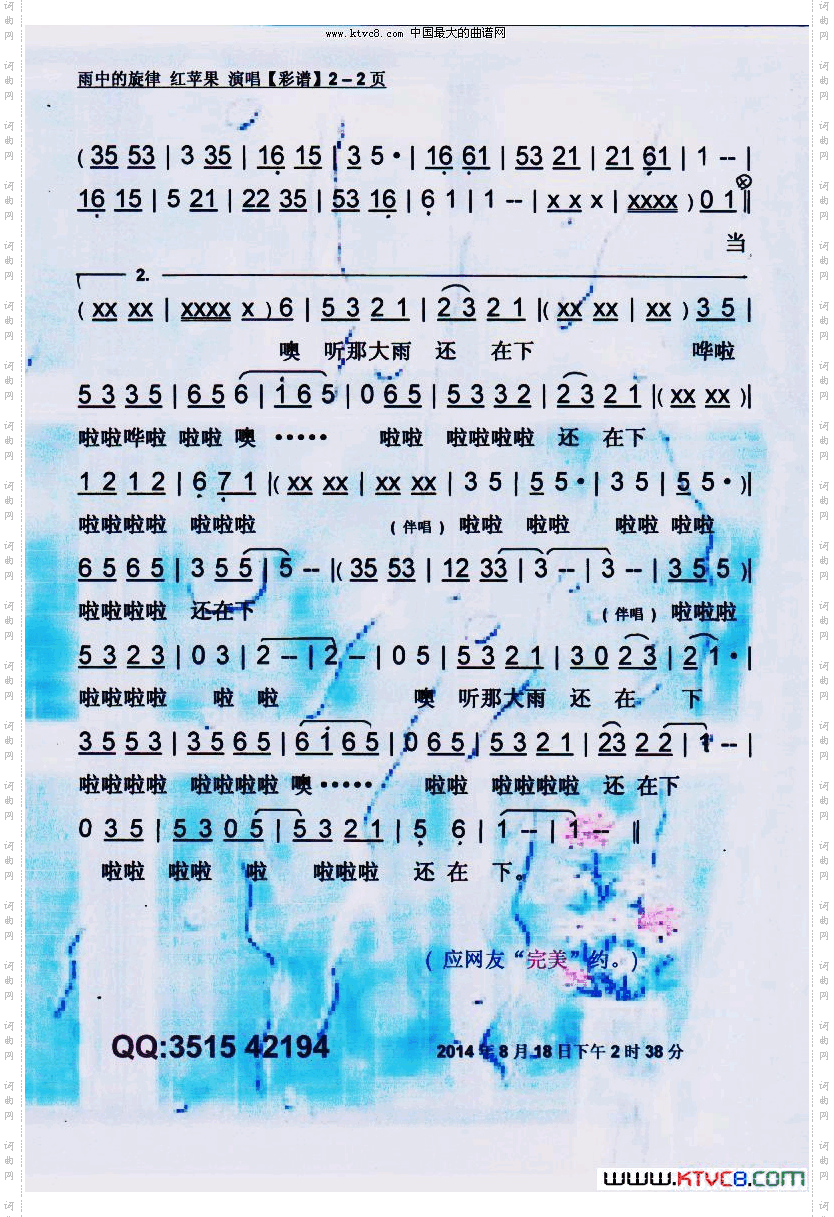 www.ktvc8.com 中国最大的曲谱网
雨中的旋律 红苹果 演唱【彩谱】2－2页
( 35 53 | 3 35 | 16 15 | 3 5· | 16 61 | 53 21 | 21 61 | 1 -- |
16 15 | 5 21 | 22 35 | 53 16 | 6 1 | 1 -- | x x x | xxxx ) 0 1 ‖
当
2.
( xx xx | xxxx x ) 6 | 5 3 2 1 | 2 3 2 1 |( xx xx | xx ) 3 5 |
噢 听那大雨 还 在下 哗啦
5 3 3 5 | 6 5 6 | i 6 5 | 0 6 5 | 5 3 3 2 | 2 3 2 1 |( xx xx )|
啦啦哗啦 啦啦 噢 ····· 啦啦 啦啦啦啦 还 在下
1 2 1 2 | 6 7 1 |( xx xx | xx xx | 3 5 | 5 5· | 3 5 | 5 5· )|
啦啦啦啦 啦啦啦 (伴唱) 啦啦 啦啦 啦啦 啦啦
6 5 6 5 | 3 5 5 | 5 -- |( 35 53 | 12 33 | 3 -- | 3 -- | 3 5 5 )|
啦啦啦啦 还在下 (伴唱) 啦啦啦
5 3 2 3 | 0 3 | 2 -- | 2 -- | 0 5 | 5 3 2 1 | 3 0 2 3 | 2 1· |
啦啦啦啦 啦 啦 噢 听那大雨 还 在 下
3 5 5 3 | 3 5 6 5 | 6 i 6 5 | 0 6 5 | 5 3 2 1 | 23 2 2 | 1 -- |
啦啦啦啦 啦啦啦啦 噢····· 啦啦 啦啦啦啦 还 在下
0 3 5 | 5 3 0 5 | 5 3 2 1 | 5 6 | 1 -- | 1 -- ‖
啦啦 啦啦 啦 啦啦啦 还 在 下。
( 应网友“完美”约。)
QQ:3515 42194
2014 年 8 月 18 日下午 2 时 38 分
www.KTVC8.com